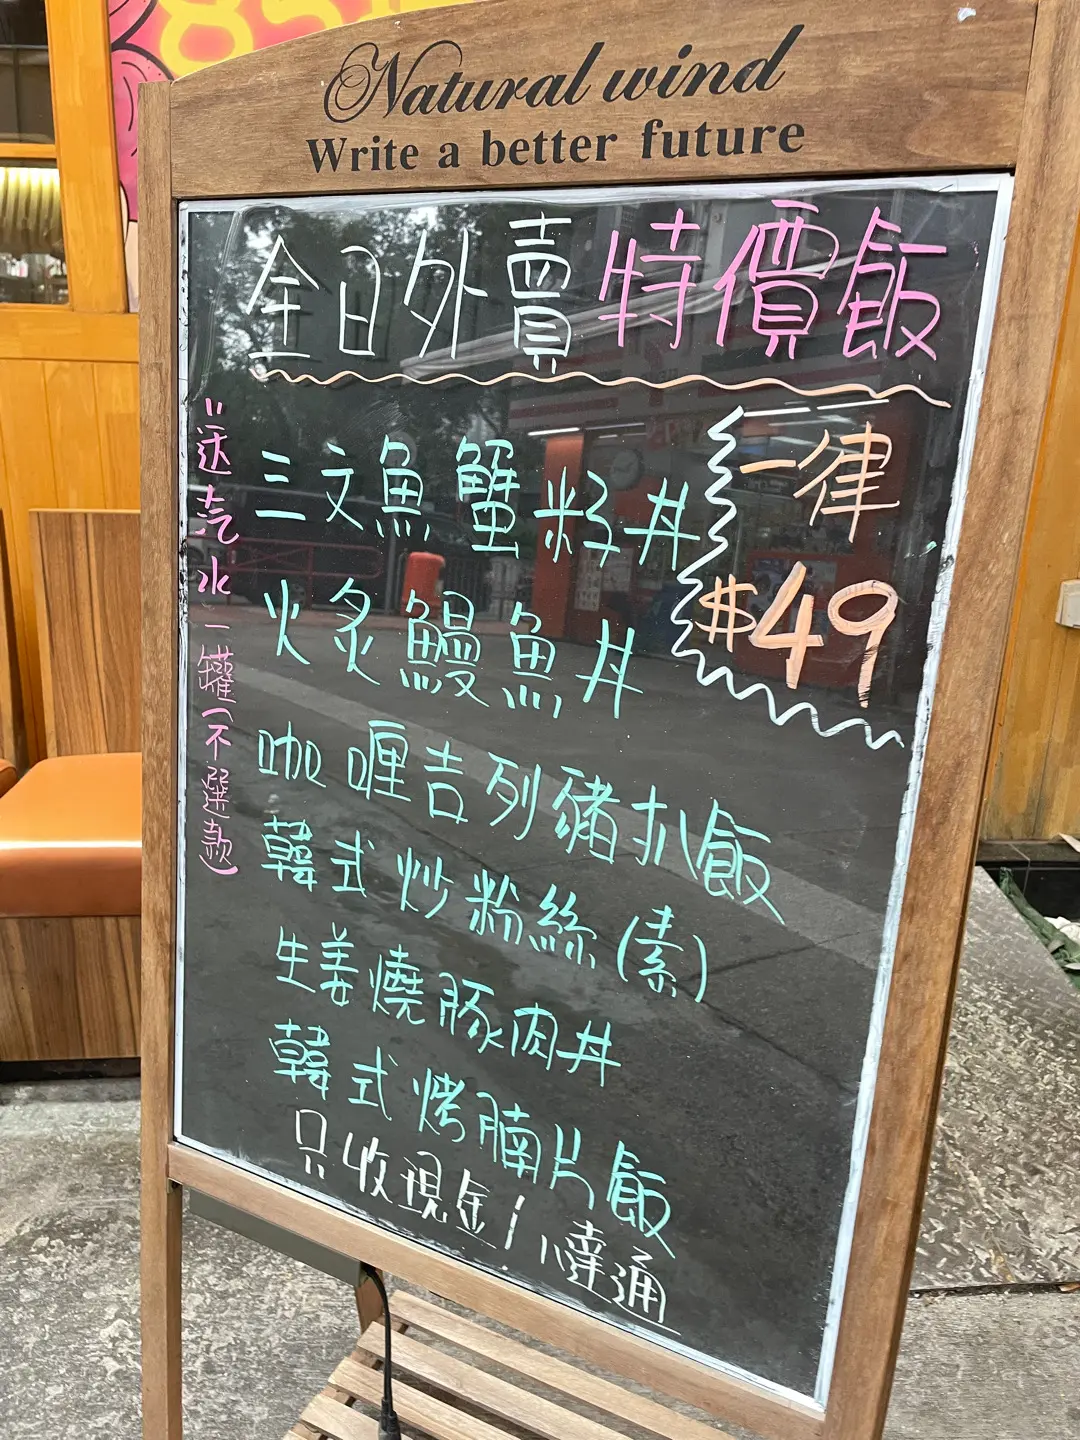 Natural wind
Write a better future
全日外賣特價飯
一律
$49
"送汽水一罐(不選款)
三文魚蟹籽丼
火炙鰻魚丼
咖喱吉列豬扒飯
韓式炒粉絲(素)
生姜燒豚肉丼
韓式烤腩片飯
只收現金/八達通